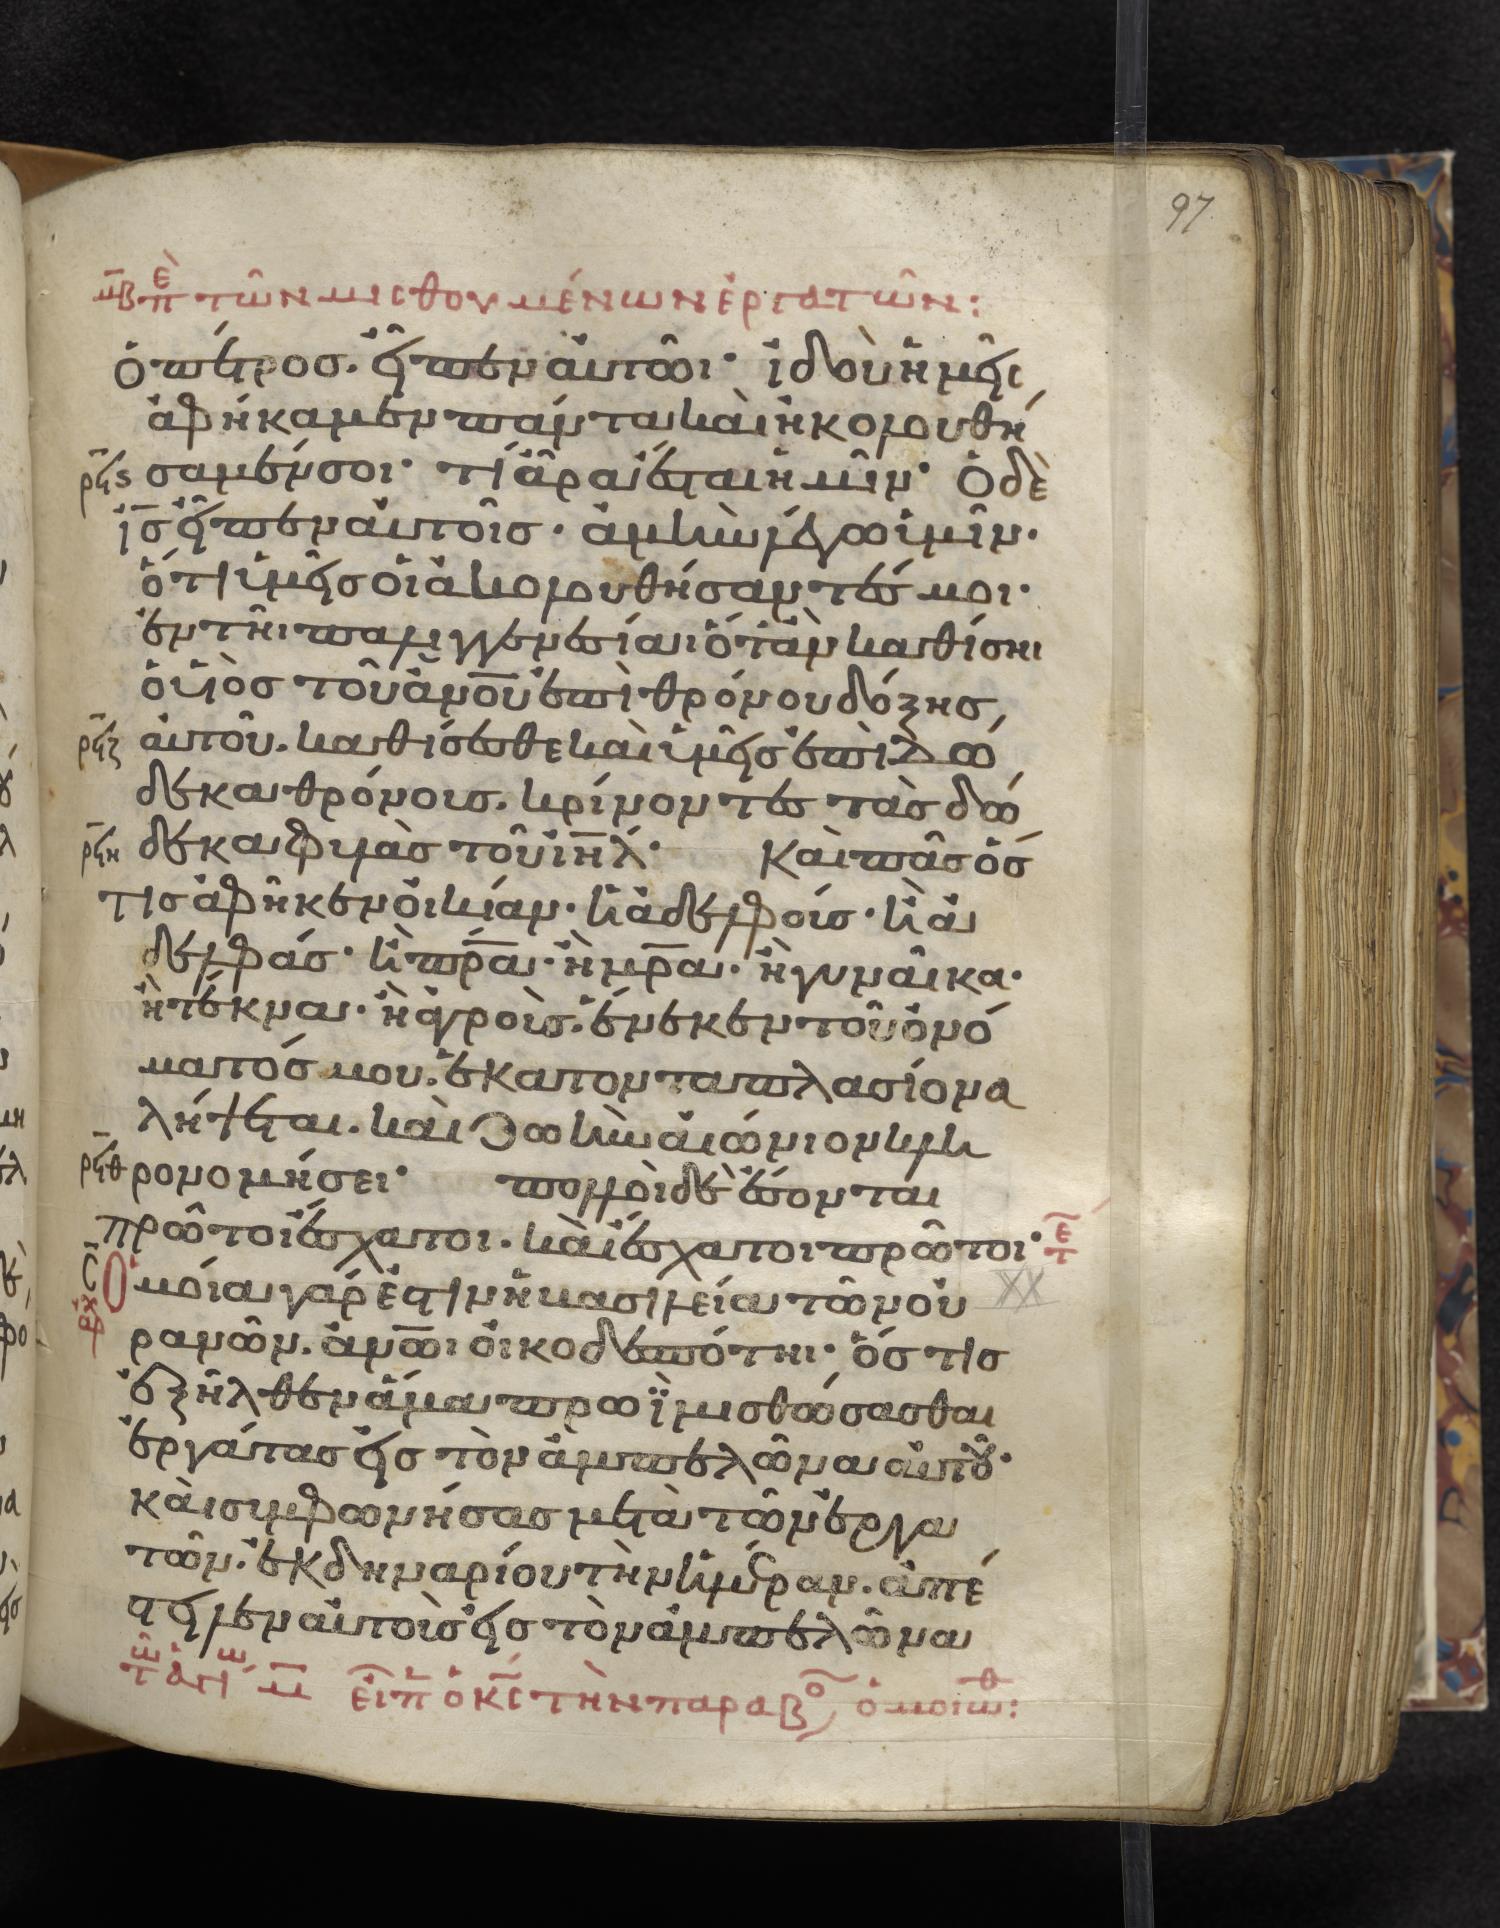 97
μβ πε τῶν μισθουμένων ἐργατῶν:
ὁ πέτρος. εἶπεν αὐτῶι· ἰδοὺ ἡμεῖς
ἀφήκαμεν πάντα καὶ ἠκολουθή
ρϟς σαμέν σοι· τί ἄρα ἔσται ἡμῖν· Ὁ δὲ
ἰς εἶπεν αὐτοῖς· ἀμὴν λέγω ὑμῖν·
ὅτι ὑμεῖς οἱ ἀκολουθήσαντές μοι·
ἐν τῆι παλιγγενεσίαι ὅταν καθίσηι
ὁ υἱὸς τοῦ ἀνου ἐπὶ θρόνου δόξης
ρϟζ αὐτοῦ. καθίσεσθε καὶ ὑμεῖς ἐπὶ δώ
δεκα θρόνοις. κρίνοντες τὰς δώ
ρϟη δεκα φυλὰς τοῦ ιηλ· Καὶ πᾶς ὅσ
τις ἀφῆκεν οἰκίαν· ἢ ἀδελφούς· ἢ ἀ
δελφάς· ἢ πρα· ἢ μρα· ἢ γυναῖκα·
ἢ τέκνα· ἢ ἀγροὺς. ἕνεκεν τοῦ ὀνό
ματός μου. ἑκατονταπλασίονα
λήψεται. καὶ ζωὴν αἰώνιον κλη
ρϟθ ρονομήσει· πολλοὶ δὲ ἔσονται
πρῶτοι ἔσχατοι. καὶ ἔσχατοι πρῶτοι· τε
ς Ὁμοία γάρ ἐστιν ἡ βασιλεία τῶν οὐ XX
αρχ
ρανῶν. ἀνωι οἰκοδεσπότηι· ὅστις
ἐξῆλθεν ἅμα πρωῒ μισθώσασθαι
ἐργάτας εἰς τὸν ἀμπελῶνα αὐτοῦ·
καὶ συμφωνήσας μετὰ τῶν ἐργα
τῶν. ἐκ δηναρίου τὴν ἡμέραν. ἀπέ
στειλεν αὐτοὺς εἰς τὸν ἀμπελῶνα
εἶπ ὁ κς τὴν παραβο ὁμοιωθ: